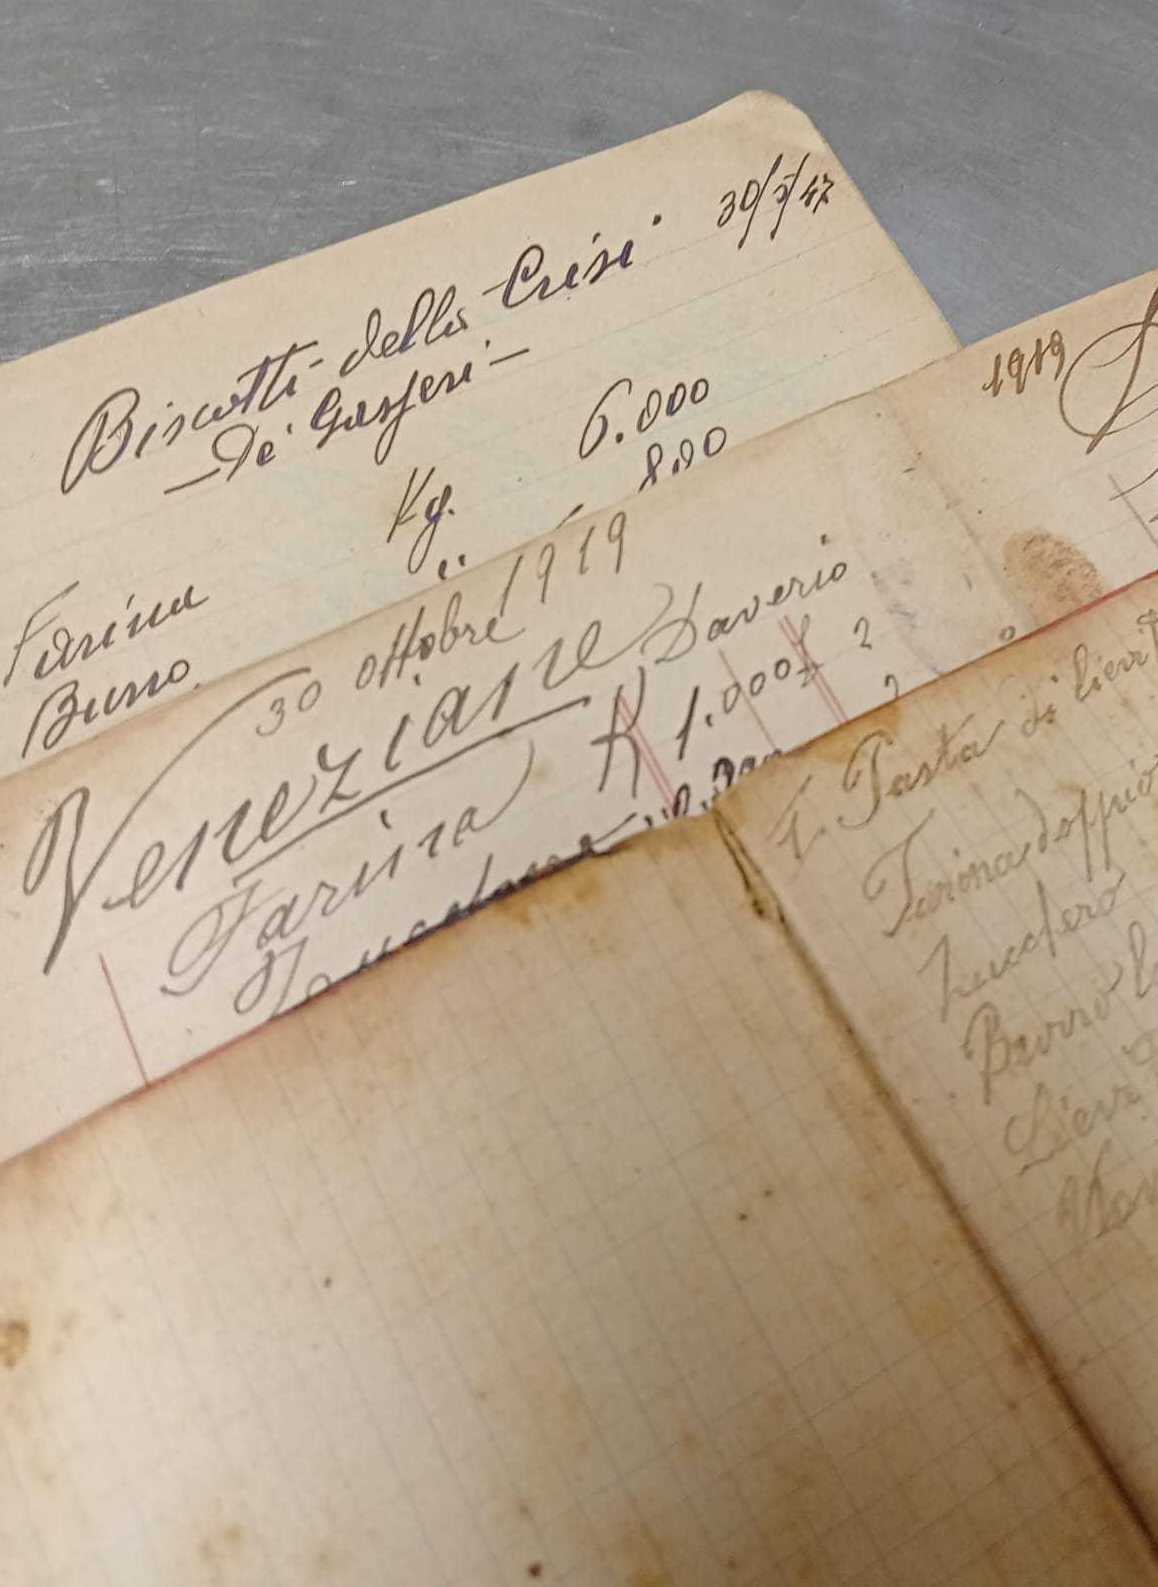 30/5/47
Biscotti della Crisi
- De Gasperi -
Farina Kg. 6.000
Burro " 800
1919
30 ottobre 1919
Veneziane Daverio
Farina K 1.000
Pasta di
Farina doppio
Zucchero
Burro